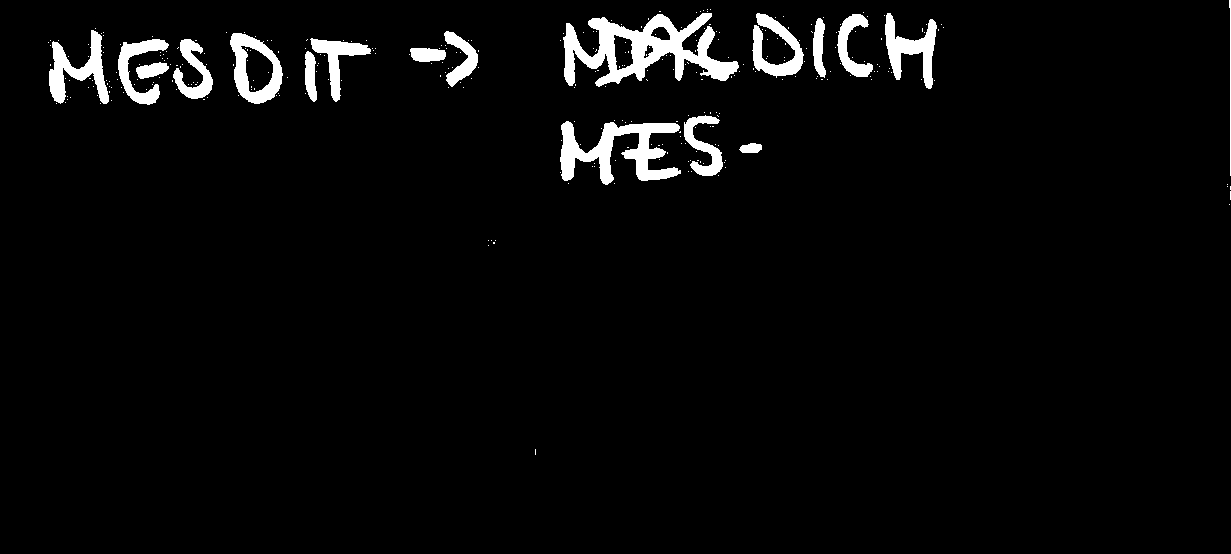 MESDIT → DICH
MES-